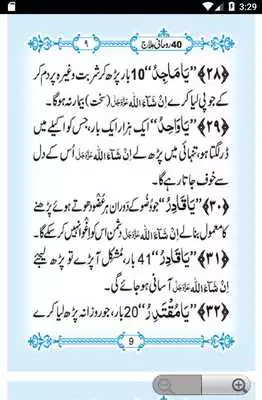 3:29
40 روحانی علاج
۹
﴿۲۸﴾ ’’یَا مَاجِدُ‘‘ 10 بار پڑھ کر شربت وغیرہ پر دم کر
کے جو پی لیا کرے اِنْ شَآءَ اللہ عَزَّوَجَلَّ (سخت) بیمار نہ ہوگا۔
﴿۲۹﴾ ’’یَا وَاحِدُ‘‘ ایک ہزار ایک بار، جس کو اکیلے میں
ڈر لگتا ہو، تنہائی میں پڑھ لے اِنْ شَآءَ اللہ عَزَّوَجَلَّ اُس کے دل
سے خوف جاتا رہے گا۔
﴿۳۰﴾ ’’یَا قَادِرُ‘‘ جو وُضو کے دَوران ہر عُضْو دھوتے ہوئے پڑھنے
کا معمول بنالے اِنْ شَآءَ اللہ عَزَّوَجَلَّ دشمن اس کو اغوا نہیں کرسکے گا۔
﴿۳۱﴾ ’’یَا قَادِرُ‘‘ 41 بار، مُشکِل آپڑے تو پڑھ لیجئے
اِنْ شَآءَ اللہ عَزَّوَجَلَّ آسانی ہوجائے گی۔
﴿۳۲﴾ ’’یَا مُقْتَدِرُ‘‘ 20 بار، جو روزانہ پڑھ لیا کرے
9